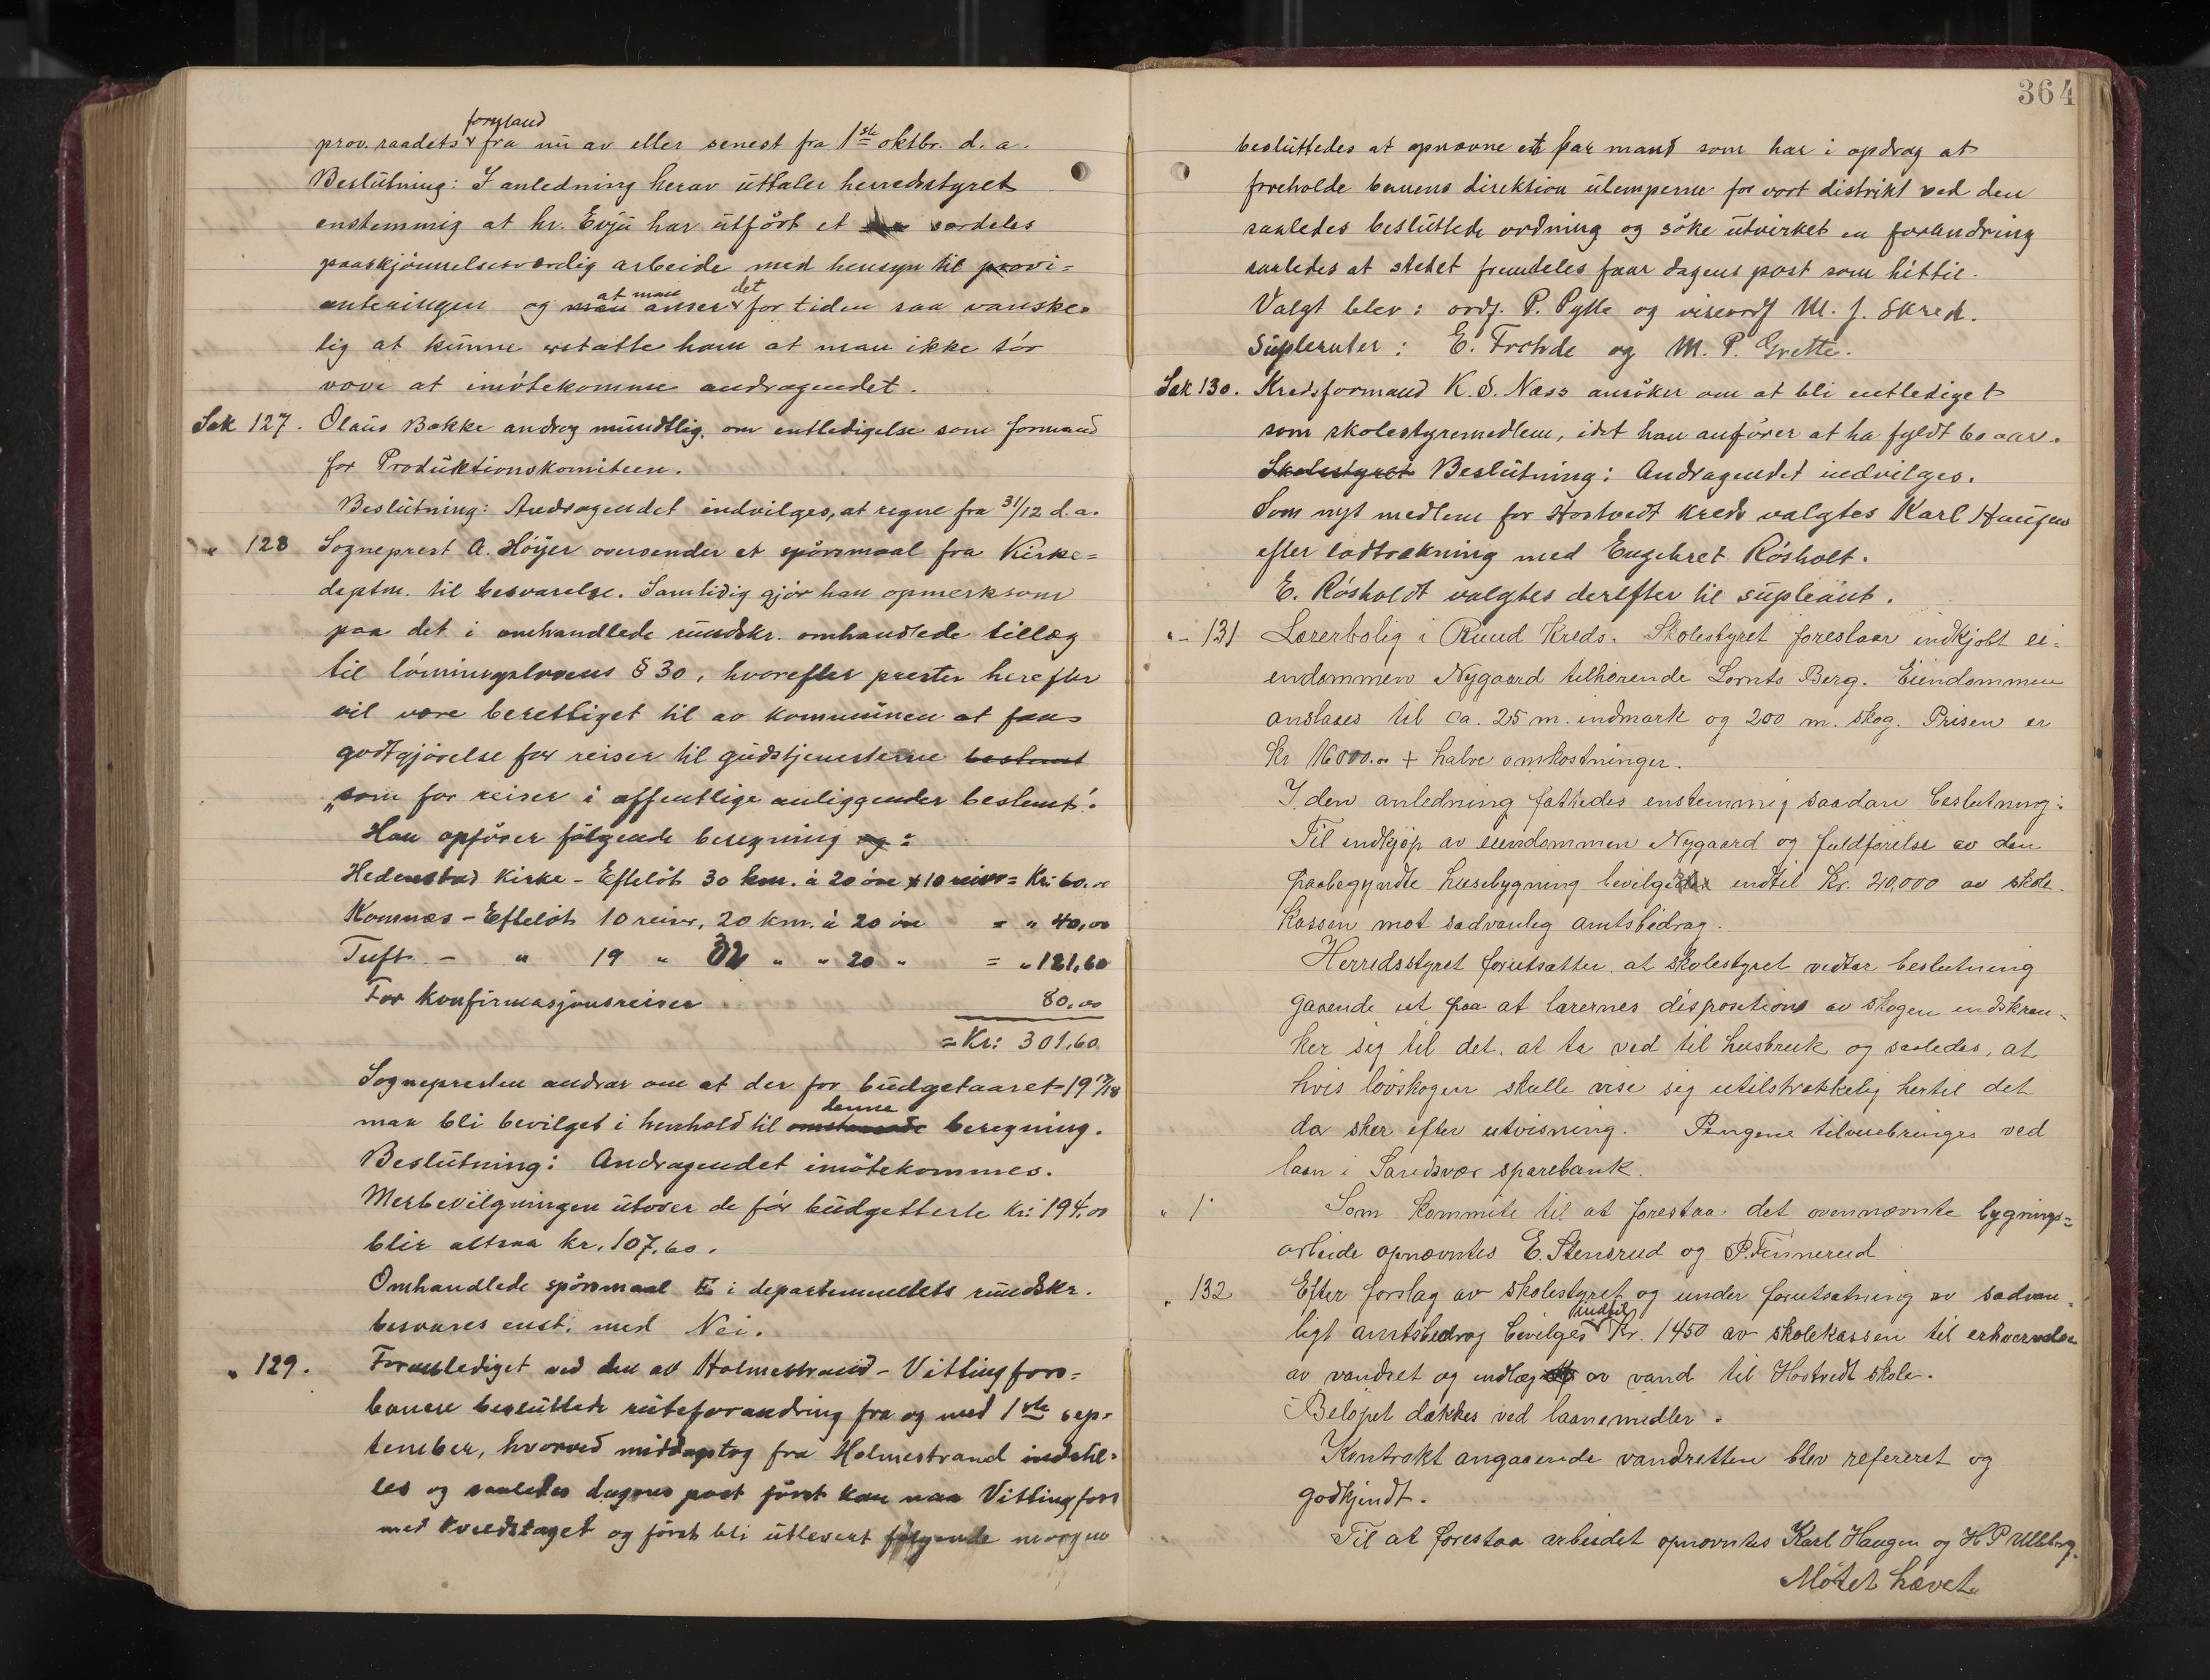 prov. raadets formand fra nu av eller senest fra 1ste oktbr. d. a.
Beslutning: I anledning herav uttaler herredsstyret
enstemmig at hr. Evju har utført et særdeles
paaskjønnelsesværdig arbeide med hensyn til provi=
anteringen og at man anser det for tiden saa vanske=
lig at kunne erstatte ham at man ikke tør
vove at imøtekomme andragendet.
Sak 127. Olaus Bakke androg mundtlig. om entledigelse som formand
for Produktionskomiteen.
Beslutning: Andragendet indvilges, at regne fra 31/12 d. a.
" 128 Sogneprest A. Höyer oversender et spørsmaal fra Kirke=
deptm. til besvarelse. Samtidig gjør han opmerksom
paa det i omhandlede rundskr. omhandlede tillæg
til lønningslovens § 30, hvorefter prester herefter
vil være berettiget til av kommunen at faa
godtgjørelse for reiser til gudstjenesterne bestemt
"som for reiser i offentlige anliggender bestemt".
Han opfører følgende beregning og:
Hedenstad Kirke - Efteløt 30 km. à 20 øre x 10 reiser = Kr: 60.00
Komnæs - Efteløt 10 reiser, 20 km. à 20 øre = " 40,00
Tuft - " 19 " 32 " " 20 " = " 121,60
For konfirmasjonsreiser 80.00
= Kr: 301,60
Sognepresten andrar om at der for budgetaaret 1917/18
maa bli bevilget i henhold til denne beregning.
Beslutning: Andragendet imøtekommes.
Merbevilgningen utover de før budgetterte Kr: 194,00
blir altsaa kr. 107,60.
Omhandlede spørsmaal E i departementets rundskr.
besvares enst. med Nei.
" 129. Foranlediget ved den av Holmestrand - Vittingfoss=
banen besluttede ruteforandring fra og med 1ste sep=
tember, hvorved middagstog fra Holmestrand indstil=
les og saaledes dagens post først kan naa Vittingfoss
med kveldstoget og først bli utlevert følgende morgen
364
besluttedes at opnævne et par mand som har i opdrag at
foreholde banens direktion ulemperne for vort distrikt ved den
saaledes besluttede ordning og søke utvirket en forandring
saaledes at stedet fremdeles faar dagens post som hittil.
Valgt blev: ordf. P. Pytte og viseordf M. J. Skred.
Supleanter: E. Frohde og M. P. Grette.
Sak 130. Kredsformand K. S. Næss ansøker om at bli entlediget
som skolestyremedlem, idet han anfører at ha fyldt 60 aar.
Skolestyret Beslutning: Andragendet indvilges.
Som nyt medlem for Hostvedt kreds valgtes Karl Haugen
efter lodtrækning med Engebret Røsholt.
E. Røsholdt valgtes derefter til supleant.
" - 131 Lærerbolig i Ruud Kreds. Skolestyret foreslaar indkjøbt ei=
endommen Nygaard tilhørende Lornts Berg. Eiendommen
anslaaes til ca. 25 m. indmark og 200 m. skog. Prisen er
Kr 16000.00 + halve omkostninger.
I den anledning fattedes enstemmig saadan beslutning:
Til indkjøp av eiendommen Nygaard og fuldførelse av den
paabegyndte husebygning bevilges indtil Kr. 20,000 av skole
kassen mot sedvanlig amtsbidrag.
Herredsstyret forutsætter at skolestyret vedtar beslutning
gaaende ut paa at lærernes disposition av skogen indskræn=
ker sig til det, at ta ved til husbruk og saaledes, at
hvis løvskogen skulle vise sig utilstrækkelig hertil det
da sker efter utvisning. Pengene tilveiebringes ved
laan i Sandsvær sparebank.
" 1 Som kommite til at forestaa det ovennævnte bygnings=
arbeide opnævntes E. Stensrud og P. Tinnerud
" 132 Efter forslag av skolestyret og under forutsætning av sædvan=
ligt amtsbidrag bevilges indtil Kr. 1450 av skolekassen til erhvervelse
av vandret og indlæg av vand til Hostvedt skole.
Beløpet dækkes ved laanemidler.
Kontrakt angaaende vandretten blev refereret og
godkjendt.
Til at forestaa arbeidet opnævntes Karl Haugen og H P Ulleberg.
Møtet hævet.